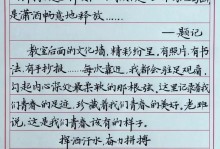 是潇洒畅意地释放……
——题记
教室后面的文化墙,精彩纷呈,有照片,有书
法,有手抄报……每次靠近,我都会驻足观看,
勾起内心深处最柔软的那根弦。这里记录着我
们青春的足迹,珍藏着我们青春的美好。老班
说,这是我们青春该有的样子。
挥洒汗水,奋力拼搏